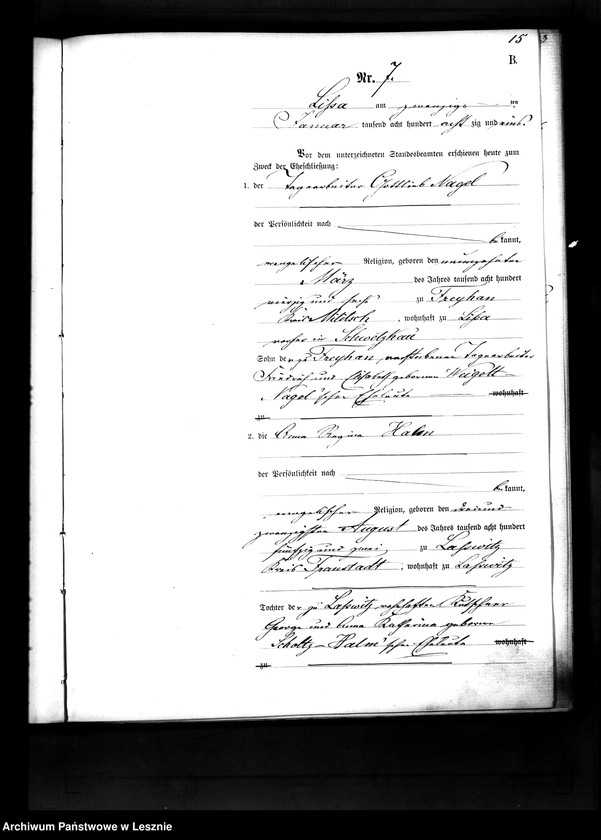 15
3
B.
Nr. 7.
Lissa am zwanzigs ten
Januar tausend acht hundert acht zig und eins.
Vor dem unterzeichneten Standesbeamten erschienen heute zum
Zweck der Eheschließung:
1. der Tagearbeiter Gottlieb Nagel
der Persönlichkeit nach
be kannt,
evangelischer Religion, geboren den neunzehnten
März des Jahres tausend acht hundert
vierzig und sechs zu Freyhan
Kreis Militsch, wohnhaft zu Lissa
vorher in
Sohn der zu Freyhan verstorbenen Tagearbeiter
Friedrich und Elisabeth gebornen Weigelt
Nagel'schen Eheleute wohnhaft
zu
2. die Anna Regina Halm
der Persönlichkeit nach
be kannt,
evangelischer Religion, geboren den drei und
zwanzigsten August des Jahres tausend acht hundert
fünfzig und zwei zu Lasswitz
Kreis Fraustadt, wohnhaft zu Lasswitz
Tochter der zu Lasswitz wohnhaften Kutschner
George und Anna Katharina geborne
Scholtz - Halm'schen Eheleute wohnhaft
zu
Archiwum Państwowe w Lesznie